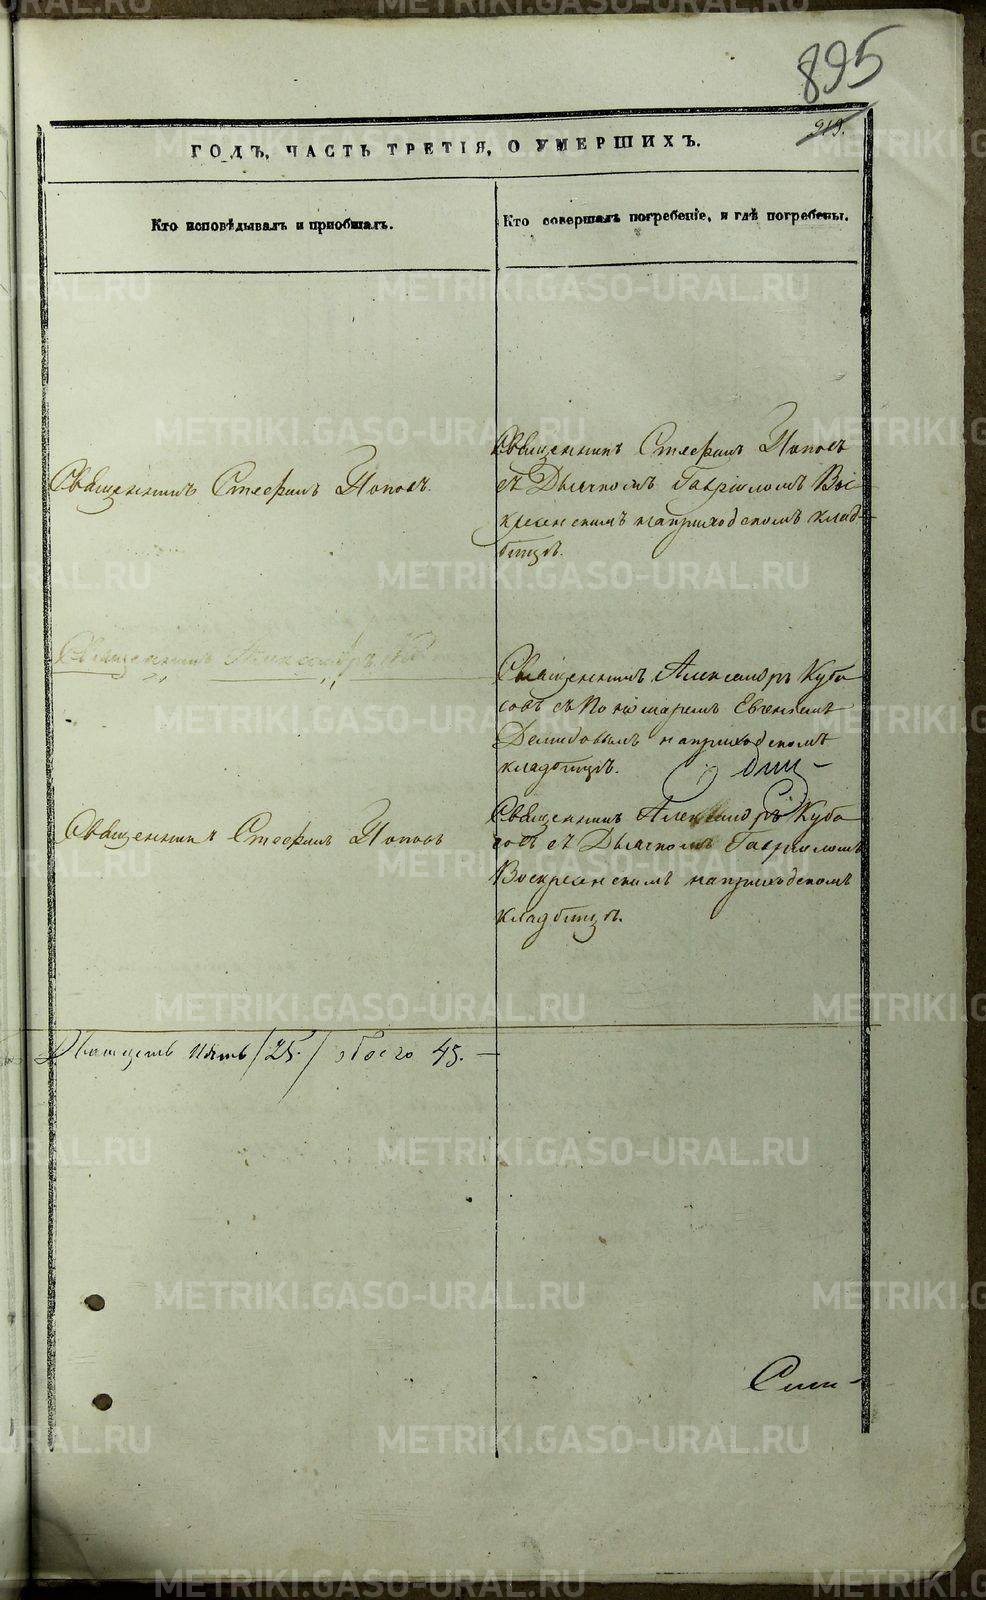 895
919.
ГОДЪ, ЧАСТЬ ТРЕТІЯ, О УМЕРШИХЪ.
Кто исповѣдывалъ и пріобщалъ.
Кто совершалъ погребеніе, и гдѣ погребены.
Священникъ Стефанъ Поповъ.
Священникъ Стефанъ Поповъ
съ Дьячкомъ Гавріиломъ Вос
кресенскимъ наприходскомъ клад-
бищѣ.
Священникъ Александръ
Священникъ Александръ Куба
совъ съ Пономаремъ Евгеніемъ
Демидовымъ наприходскомъ
кладбищѣ.
Священникъ Стефанъ Поповъ
Священникъ Александръ Куба
совъ съ Дьячкомъ Гавріиломъ
Воскресенскимъ наприходскомъ
кладбищѣ.
Двадцать пять /25./ обоего 45. —
METRIKI.GASO-URAL.RU